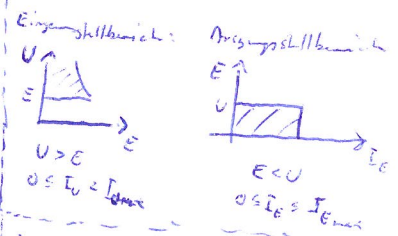 Eingangsstellbereich:
U
E
E
U > E
0 ≤ I_U ≤ I_Umax
Ausgangsstellbereich
E
U
I_E
E < U
0 ≤ I_E ≤ I_Emax